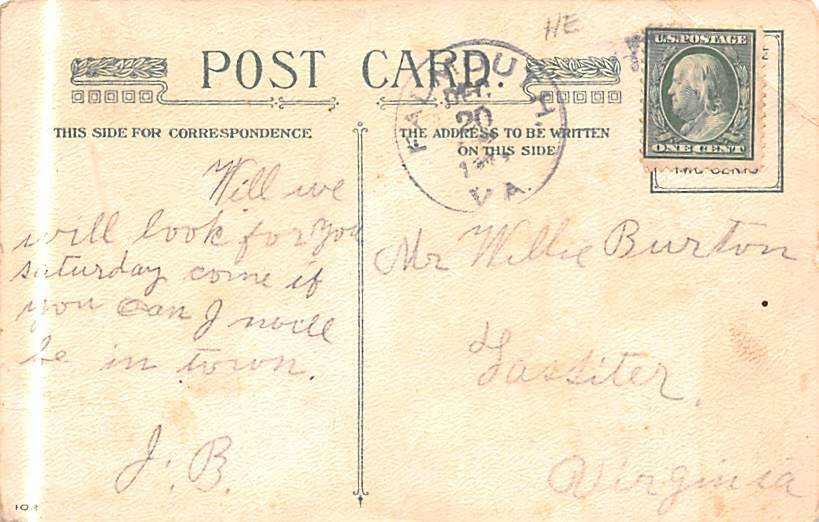 HE
POST CARD.
U.S. POSTAGE
ONE CENT
TWO CENTS
THIS SIDE FOR CORRESPONDENCE
THE ADDRESS TO BE WRITTEN
ON THIS SIDE
20
VA.
Will we
will look for you
saturday come if
you can I
be in town.
J. B.
Mr Willie Burton
Lassiter,
Virginia
102